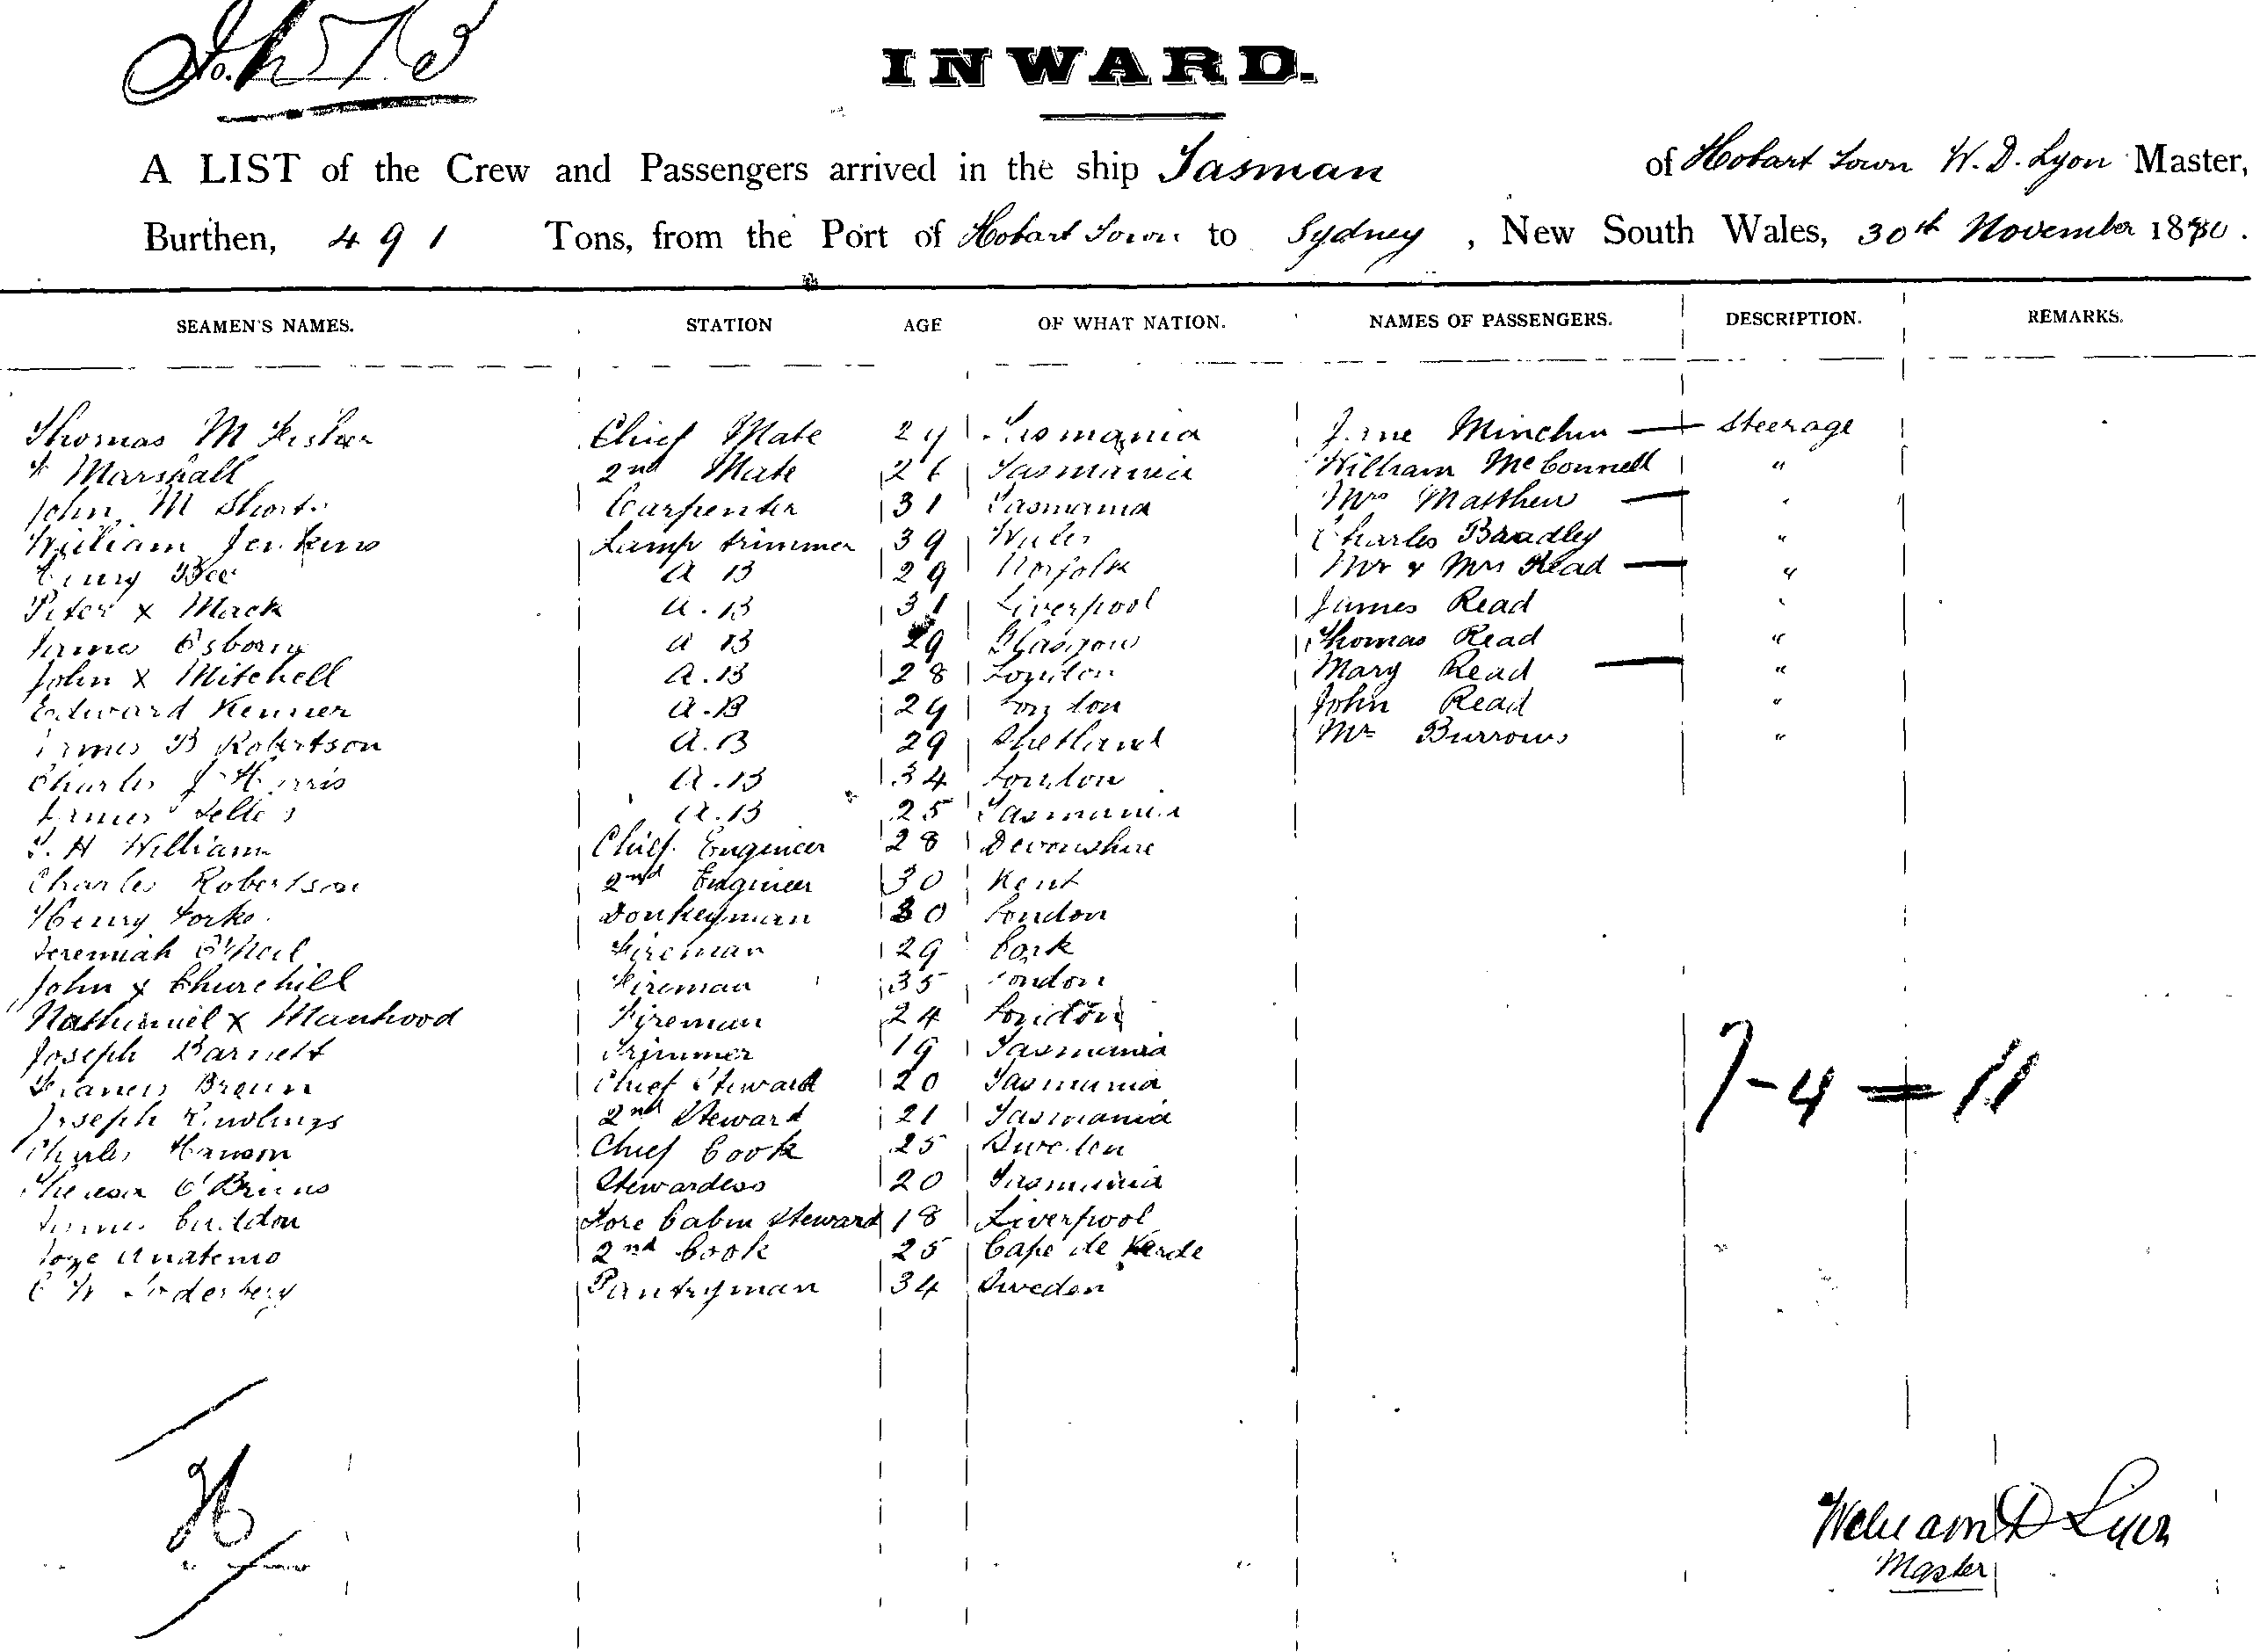 No.
INWARD.
A LIST of the Crew and Passengers arrived in the ship Tasman of Hobart Town W. D. Lyon Master,
Burthen, 491 Tons, from the Port of Hobart Town to Sydney, New South Wales, 30th November 1880.
SEAMEN'S NAMES. STATION AGE OF WHAT NATION. NAMES OF PASSENGERS. DESCRIPTION. REMARKS.
Thomas M Fisher Chief Mate 29 Tasmania Jane Minchin — Steerage
Marshall 2nd Mate 26 Tasmania William McConnell "
John M Short Carpenter 31 Tasmania Mrs Matthew — "
William Jenkins Lamp trimmer 39 Wales Charles Bradley "
Henry Bee A B 29 Norfolk Mr & Mrs Read — "
Peter x Mack A.B 31 Liverpool James Read "
James Osborn A B 29 Glasgow Thomas Read "
John x Mitchell A.B 28 London Mary Read — "
Edward Kenner A.B 29 London John Read "
James B Robertson A.B 29 Shetland Mr Burrows "
Charles J Harris A.B 34 London
James A.B 25 Tasmania
T. H William Chief Engineer 28 Devonshire
Charles Robertson 2nd Engineer 30 Kent
Henry Donkeyman 30 London
Jeremiah O'Neil Fireman 29 Cork
John x Churchill Fireman 35 London
Nathaniel x Manhood Fireman 24 London
Joseph Barnett Trimmer 19 Tasmania
Francis Brown Chief Steward 20 Tasmania
Joseph Rawlings 2nd Steward 21 Tasmania
Charles Hanson Chief Cook 25 Sweden
Theresa O'Briens Stewardess 20 Tasmania
James Fore Cabin Steward 18 Liverpool
2nd Cook 25 Cape de Verde
Soderberg Pantryman 34 Sweden
7-4=11
26
William D Lyon
Master